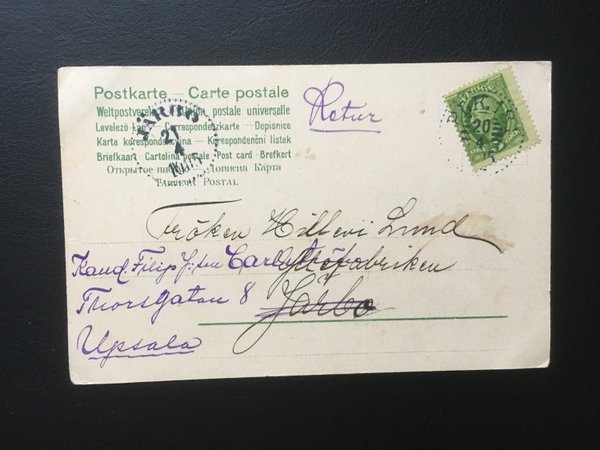 Postkarte – Carte postale
Weltpostverein – Union postale universelle
Levelező-Lap – Correspondenzkarte – Dopisnice
Karta korespondencyjna – Korespondenční lístek
Briefkaart – Cartolina postale – Post card – Brefkort
Открытое письмо – Дописна Карта
Tarjeta Postal
JÄRBO
21
4
Retur
20
4
Fröken Hillevi Lund
Kand. Filip
Järbo
Thorsgatan 8
Upsala